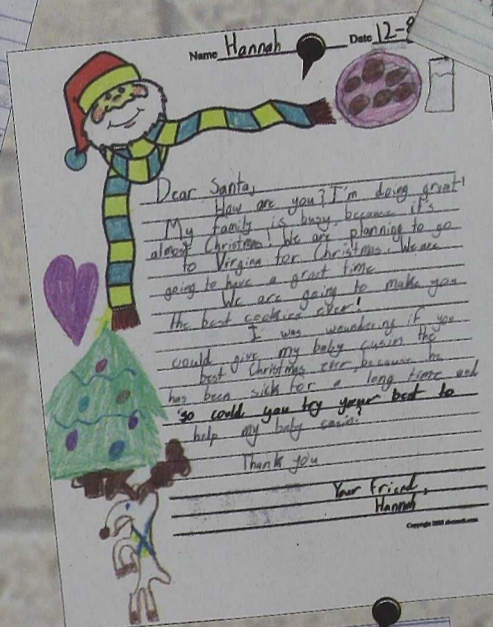 Name Hannah Date 12-
Dear Santa,
How are you? I'm doing great!
My family is busy because it's
almost Christmas! We are planning to go
to Virgina for Christmas. We are
going to have a great time
We are going to make you
the best cookies ever!
I was woundering if you
could give my baby cusin the
best Christmas ever because he
has been sick for a long time and
so could you try your best to
help my baby cusin?
Thank you
Your Friend,
Hannah